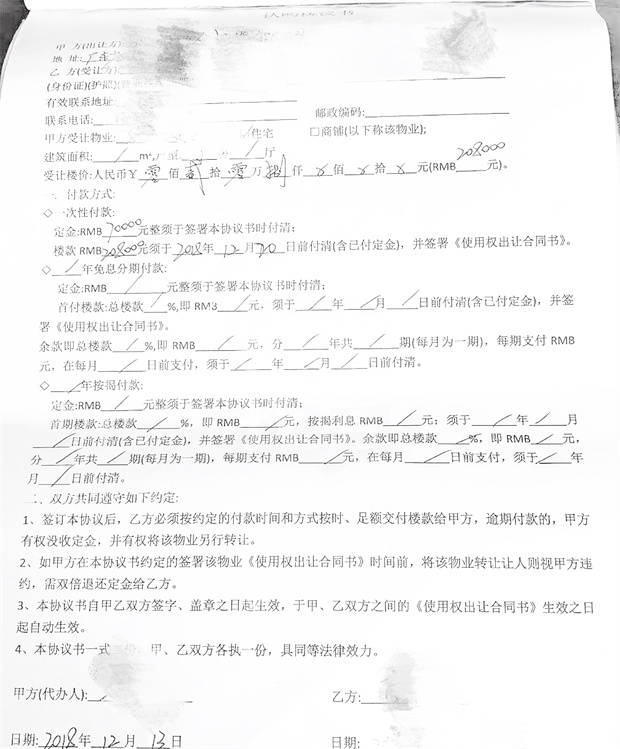 认购协议书
甲 方(出让方):
地 址: 广
乙 方(受让方):
(身份证)(护照)
有效联系地址:
联系电话:
邮政编码:
甲方受让物业: 住宅 □商铺(以下称该物业);
建筑面积: m², 厅
受让楼价:人民币￥ 零 佰 贰 拾 零 万 捌 仟 佰 拾 元(RMB 208000 元)。
一、付款方式:
◇一次性付款:
定金:RMB 元整须于签署本协议书时付清;
楼款 RMB 208000 元须于 2018 年 12 月 20 日前付清(含已付定金), 并签署《使用权出让合同书》。
◇ / 年免息分期付款:
定金:RMB / 元整须于签署本协议书时付清;
首付楼款:总楼款 / %,即 RMB / 元, 须于 / 年 / 月 / 日前付清(含已付定金), 并签
署《使用权出让合同书》。
余款即总楼款 / %,即 RMB / 元, 分 / 年共 / 期(每月为一期), 每期支付 RMB
元, 在每月 / 日前支付, 须于 / 年 / 月 / 日前付清。
◇ / 年按揭付款:
定金:RMB / 元整须于签署本协议书时付清;
首期楼款:总楼款 / %, 即 RMB / 元, 按揭利息 RMB / 元; 须于 / 年 / 月
/ 日前付清(含已付定金), 并签署《使用权出让合同书》。余款即总楼款 / %, 即 RMB / 元,
分 / 年共 / 期(每月为一期), 每期支付 RMB / 元, 在每月 / 日前支付, 须于 / 年
月 / 日前付清。
二、双方共同遵守如下约定:
1、签订本协议后, 乙方必须按约定的付款时间和方式按时、足额交付楼款给甲方, 逾期付款的, 甲方
有权没收定金, 并有权将该物业另行转让。
2、如甲方在本协议书约定的签署该物业《使用权出让合同书》时间前, 将该物业转让让人则视甲方违
约, 需双倍退还定金给乙方。
3、本协议书自甲乙双方签字、盖章之日起生效, 于甲、乙双方之间的《使用权出让合同书》生效之日
起自动生效。
4、本协议书一式 份, 甲、乙双方各执一份, 具同等法律效力。
甲方(代办人): 乙方:
日期: 2018 年 12 月 13 日 日期: